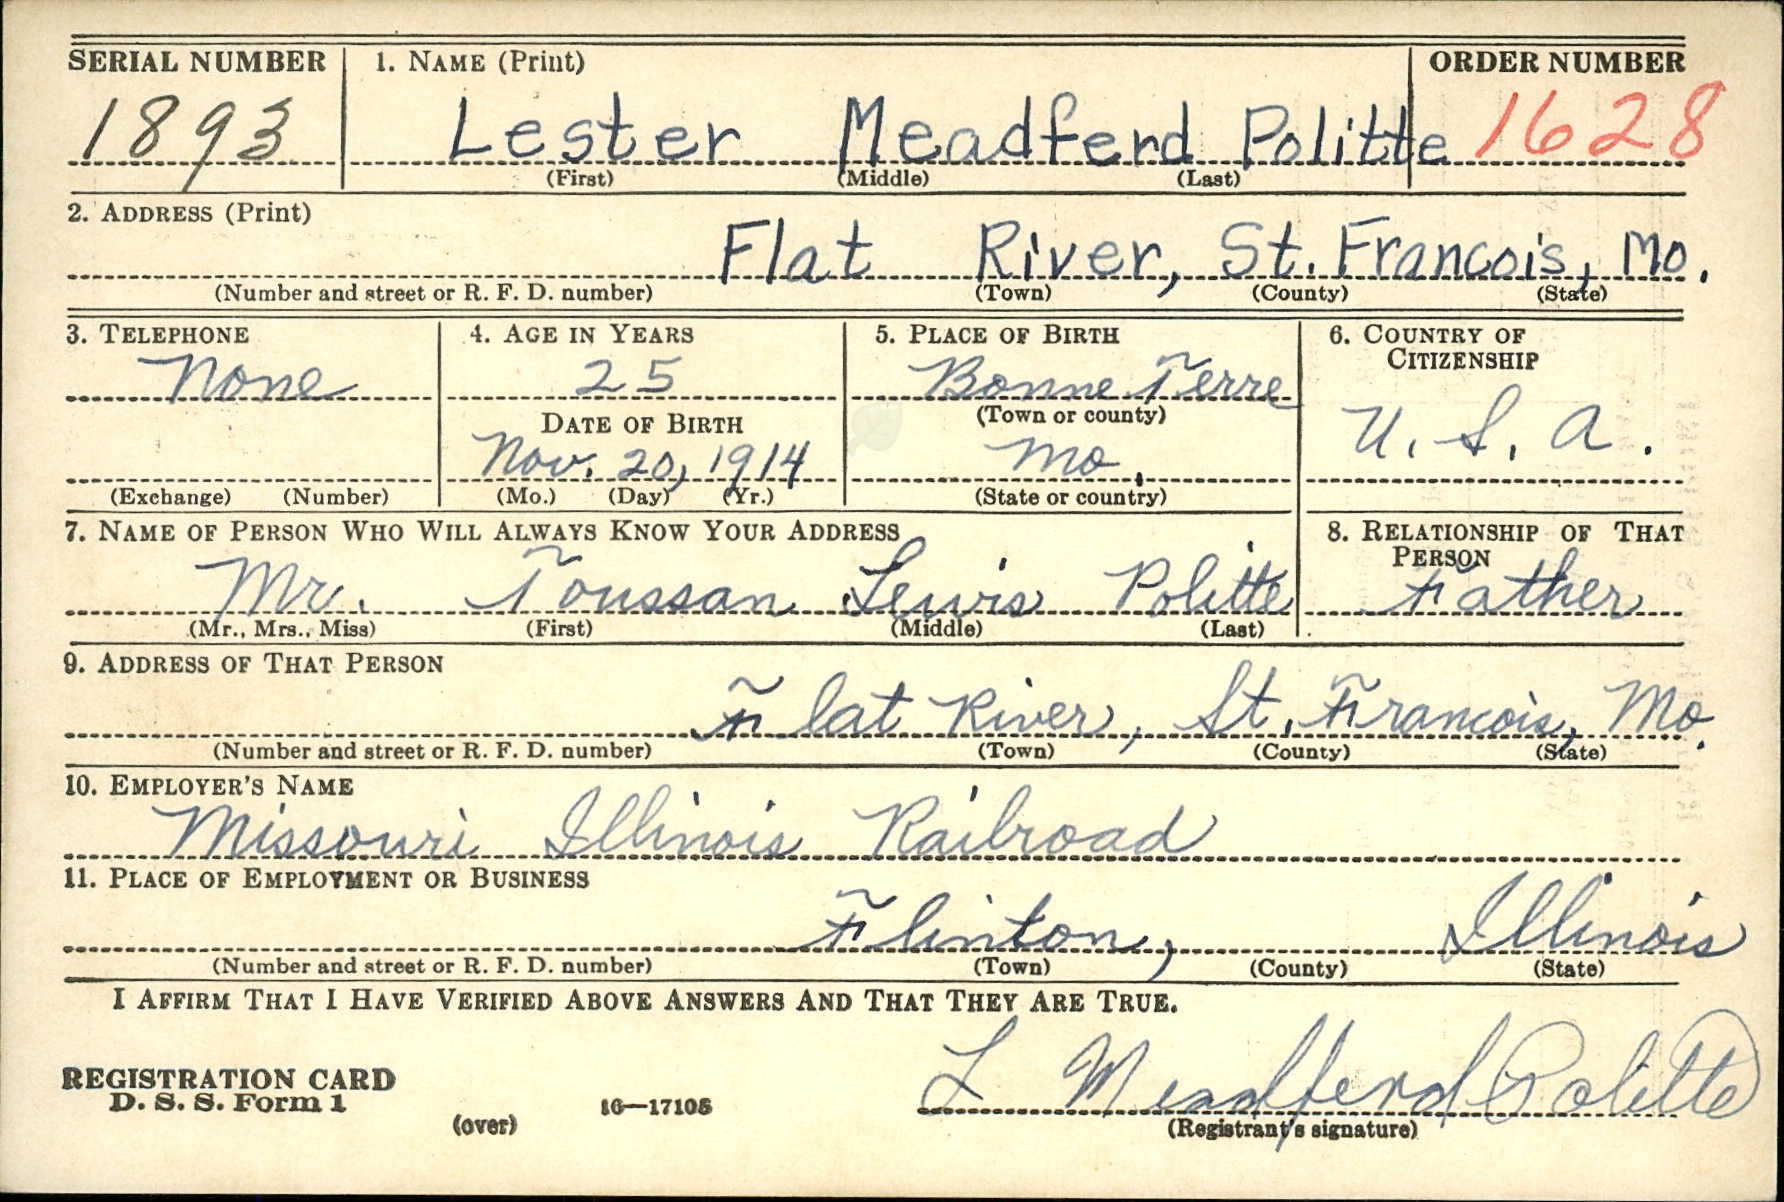 SERIAL NUMBER 1. NAME (Print) ORDER NUMBER
1893 Lester Meadferd Politte 1628
(First) (Middle) (Last)
2. ADDRESS (Print)
Flat River, St. Francois, Mo.
(Number and street or R. F. D. number) (Town) (County) (State)
3. TELEPHONE 4. AGE IN YEARS 5. PLACE OF BIRTH 6. COUNTRY OF
CITIZENSHIP
None 25 Bonne Terre
(Town or county)
DATE OF BIRTH U. S. A.
Nov. 20, 1914 Mo.
(Exchange) (Number) (Mo.) (Day) (Yr.) (State or country)
7. NAME OF PERSON WHO WILL ALWAYS KNOW YOUR ADDRESS 8. RELATIONSHIP OF THAT
PERSON
Mr. Toussan Lewis Politte Father
(Mr., Mrs., Miss) (First) (Middle) (Last)
9. ADDRESS OF THAT PERSON
Flat River, St. Francois, Mo.
(Number and street or R. F. D. number) (Town) (County) (State)
10. EMPLOYER'S NAME
Missouri Illinois Railroad
11. PLACE OF EMPLOYMENT OR BUSINESS
Flinton, Illinois
(Number and street or R. F. D. number) (Town) (County) (State)
I AFFIRM THAT I HAVE VERIFIED ABOVE ANSWERS AND THAT THEY ARE TRUE.
REGISTRATION CARD
D. S. S. Form 1 16—17105 L Meadferd Politte
(over) (Registrant's signature)